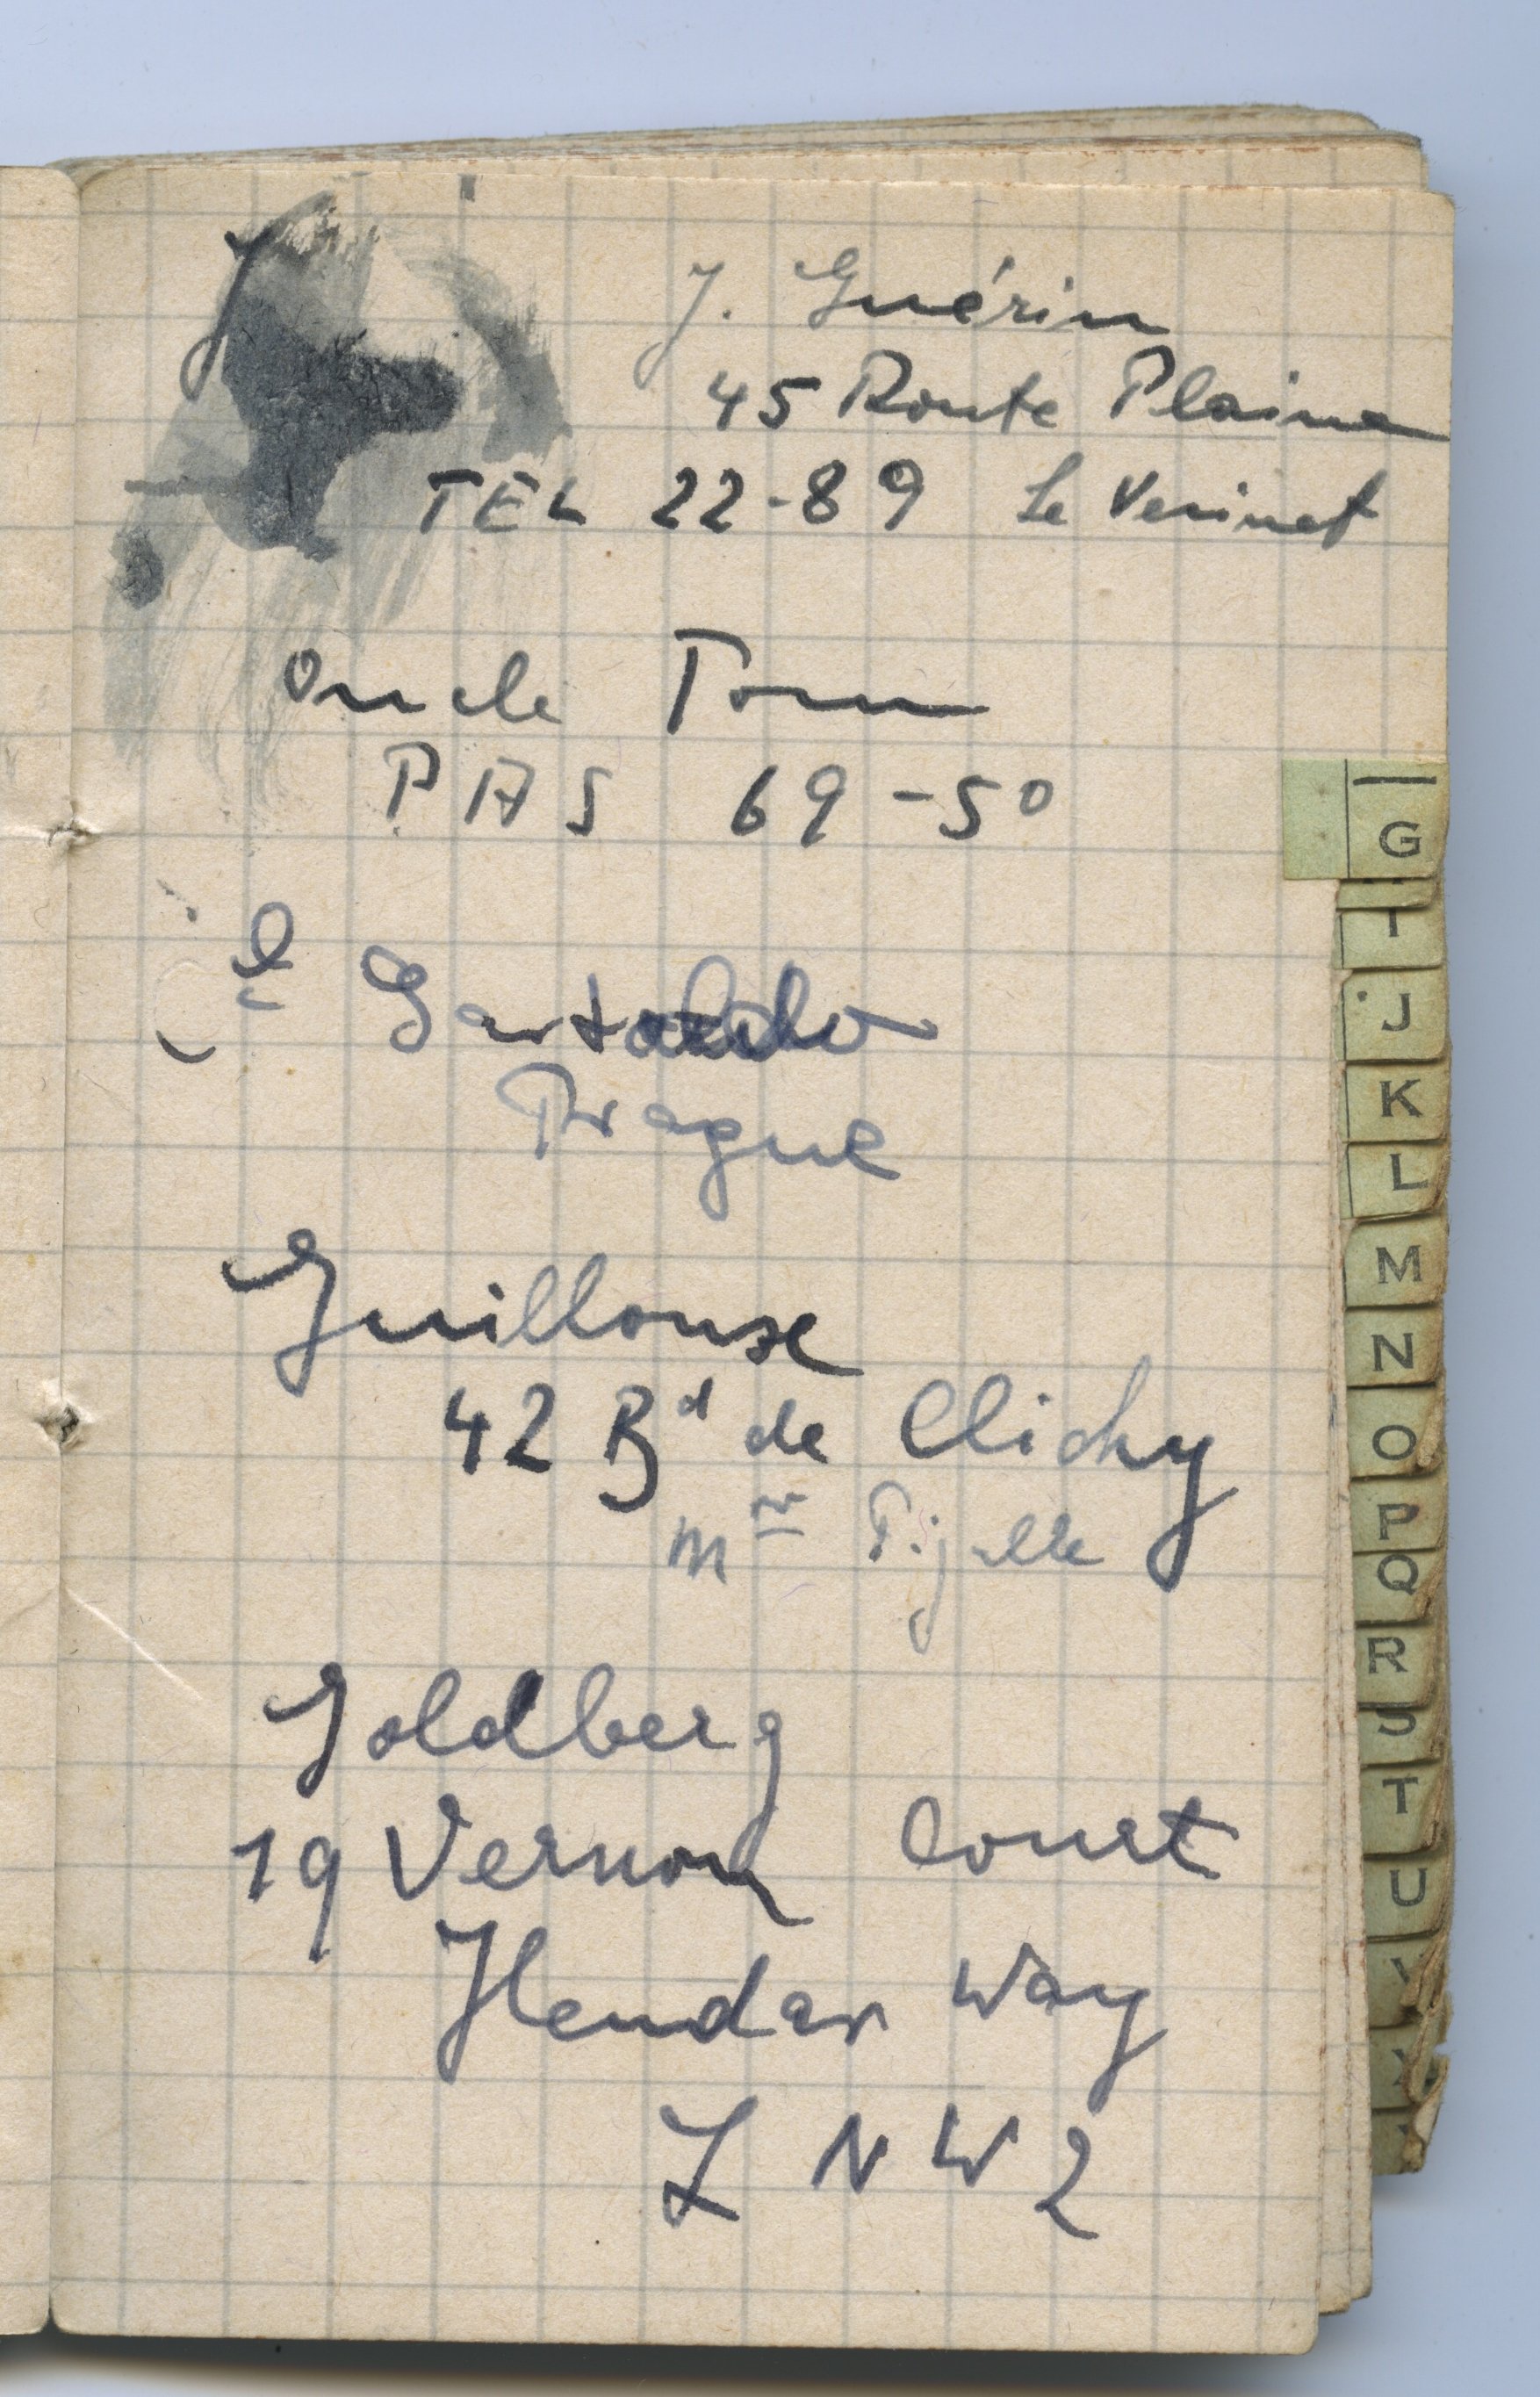 J. Guérin
45 Route Plaine
TEL 22-89 Le Vesinet
Oncle Tom
PAS 69-50
Prague
Guillouse
42 Bd de Clichy
Mro Pigalle
Goldberg
19 Vernon Court
Hendar Way
L NW2
G
I
J
K
L
M
N
O
P
Q
R
S
T
U